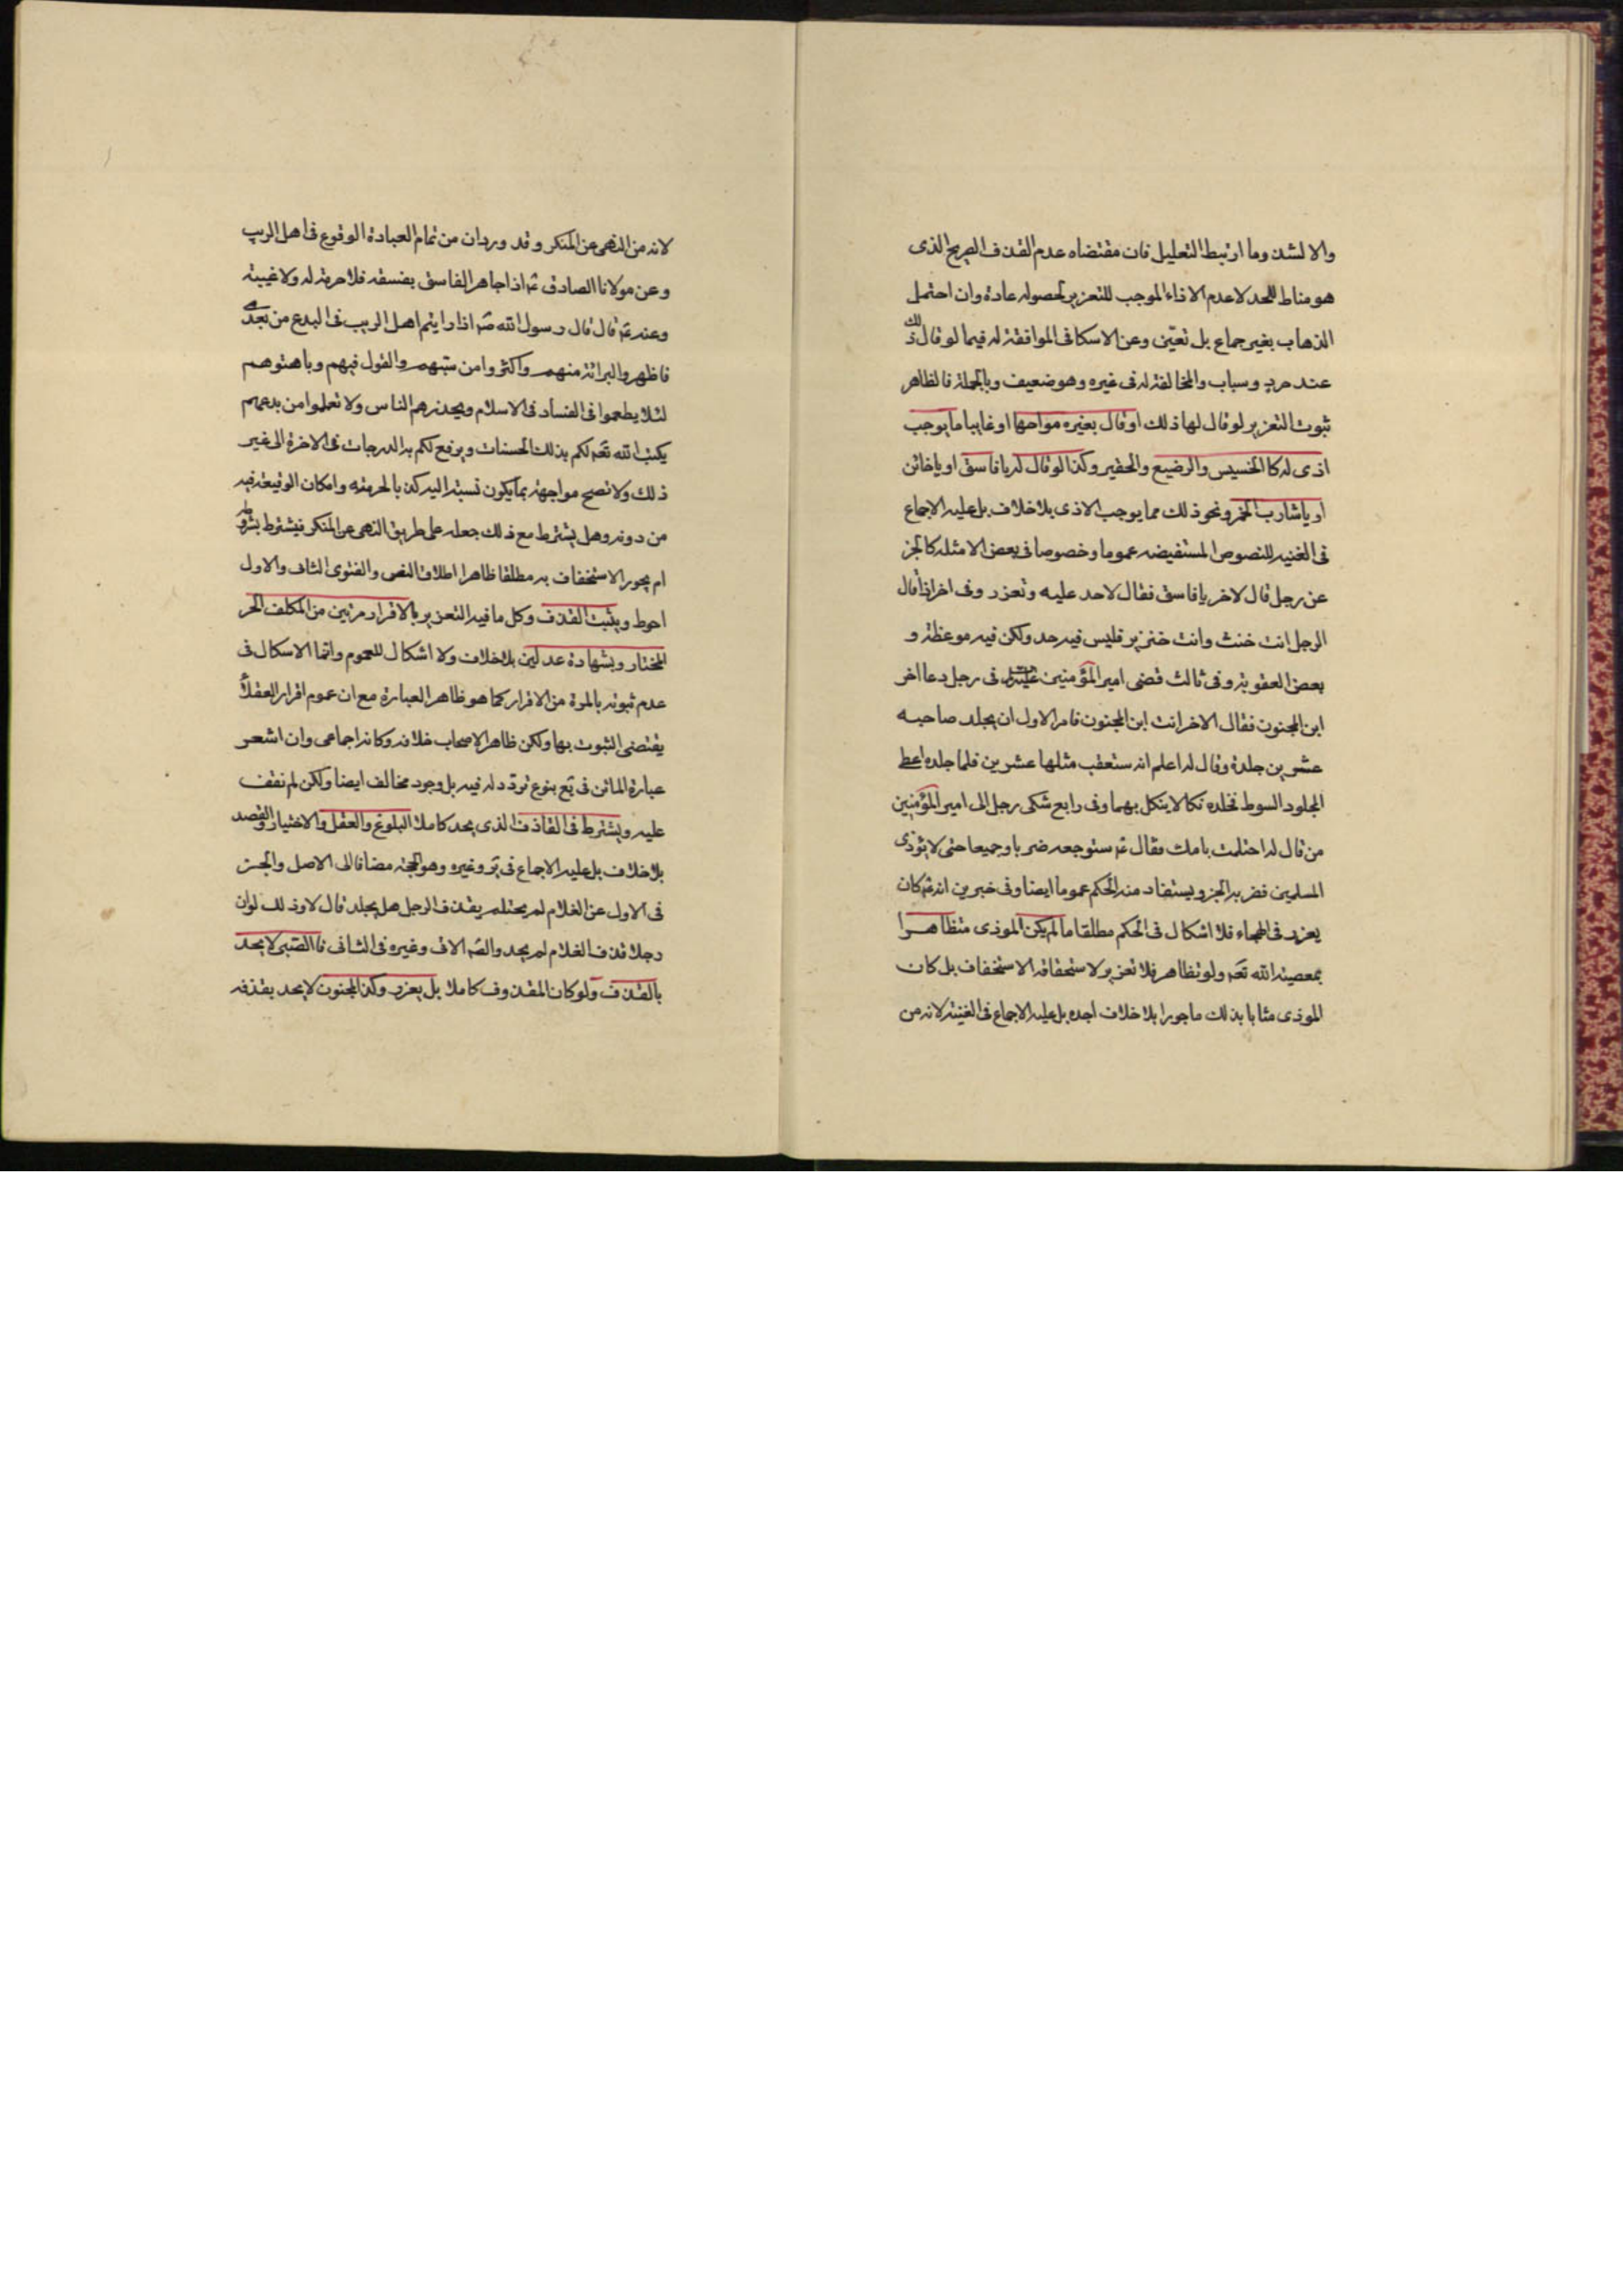 والا لشذ وما ارتبط التعليل فان مقتضاه عدم القذف الصريح الذى
هو مناط للحد لا عدم الاذاء الموجب للتعزير لحصوله عادة وان احتمل
الذهاب بغير جماع بل تعين وعن الاسكافى الموافقة له فيما لو قال ذلك
عند حرد وسباب والمخالفة له فى غيره وهو ضعيف وبالجملة فالظاهر
ثبوت التعزير لو قال لها ذلك او قال بغيره مواجها او غايبا ما يوجب
اذى له كالخسيس والرضيع والحقير وكذا لو قال له يا فاسق او يا خائن
او يا شارب الخمر ونحو ذلك مما يوجب الاذى بلا خلاف بل عليه الاجماع
فى الغنيه للنصوص المستفيضه عموما وخصوصا فى بعض الامثله كالخبر
عن رجل قال لاخر يا فاسق فقال لا حد عليه وتعزر وفى اخر اذا قال
الرجل انت خنث وانت خنزير فليس فيه حد ولكن فيه موعظة و
بعض العقوبة وفى ثالث قضى امير المؤمنين فى رجل دعا اخر
ابن المجنون فقال الاخر انت ابن المجنون فامر الاول ان يجلد صاحبه
عشرين جلدة وقال له اعلم انه ستعقب مثلها عشرين فلما جلده اعطى
المجلود السوط فجلده نكالا ينكل بهما وفى رابع شكى رجل الى امير المؤمنين
من قال له احتلمت بامك فقال ع ستوجعه ضربا وجيعا حتى لا يؤذى
المسلمين فضربه الخبر ويستفاد منه الحكم عموما ايضا وفى خبرين انه ع كان
يعزر فى الهجاء فلا اشكال فى الحكم مطلقا ما لم يكن الموذى متظاهرا
بمعصية الله تعه ولو تظاهر فلا تعزير لاستحقاقه الاستخفاف بل كان
الموذى مثابا بذلك ماجورا بلا خلاف اجده بل عليه الاجماع فى الغنية لانه من
لانه من النهى عن المنكر وقد ورد ان من تمام العبادة الوقوع فى اهل الريب
وعن مولانا الصادق ع اذا جاهر الفاسق بفسقه فلا حرمة له ولا غيبة
وعنه ع قال قال رسول الله ص اذا رايتم اهل الريب فى البدع من بعدى
فاظهروا البرائة منهم واكثروا من سبهم والقول فيهم وباهتوهم
لئلا يطعموا فى الفساد فى الاسلام ويحذرهم الناس ولا تعلموا من بدعهم
يكتب الله تعه لكم بذلك الحسنات ويرفع لكم به الدرجات فى الاخرة الى غير
ذلك ولا تصح مواجهة بما يكون نسبته اليه كذبا لحرمته وامكان الوقيعة فيه
من دونه وهل يشترط مع ذلك جعله على طريق النهى عن المنكر فيشترط بشروطه
ام يجوز الاستخفاف به مطلقا ظاهر اطلاق النص والفتوى الثانى والاول
احوط ويثبت القذف وكل ما فيه التعزير بالاقرار مرتين من المكلف الحر
المختار وبشهادة عدلين بلا خلاف ولا اشكال للعموم وانما الاشكال فى
عدم ثبوته بالمرة من الاقرار كما هو ظاهر العبارة مع ان عموم اقرار العقلاء
يقتضى الثبوت بها ولكن ظاهر الاصحاب خلافه وكانه اجماعى وان اشعر
عبارة الماتن فى يع بنوع تردد له فيه بل وجود مخالف ايضا ولكن لم نقف
عليه ويشترط فى القاذف الذى يحد كاملا البلوغ والعقل والاختيار والقصد
بلا خلاف بل عليه الاجماع فى ير وغيره وهو الحجة مضافا الى الاصل والخبر
فى الاول عن الغلام لم يحتلم يقذف الرجل هل يجلد قال لا وذلك لو ان
رجلا قذف الغلام لم يحد والص الاتى وغيره فى الثانى فالصبى لا يحد
بالقذف ولو كان المقذوف كاملا بل يعزر وكذا المجنون لا يحد بقذفه